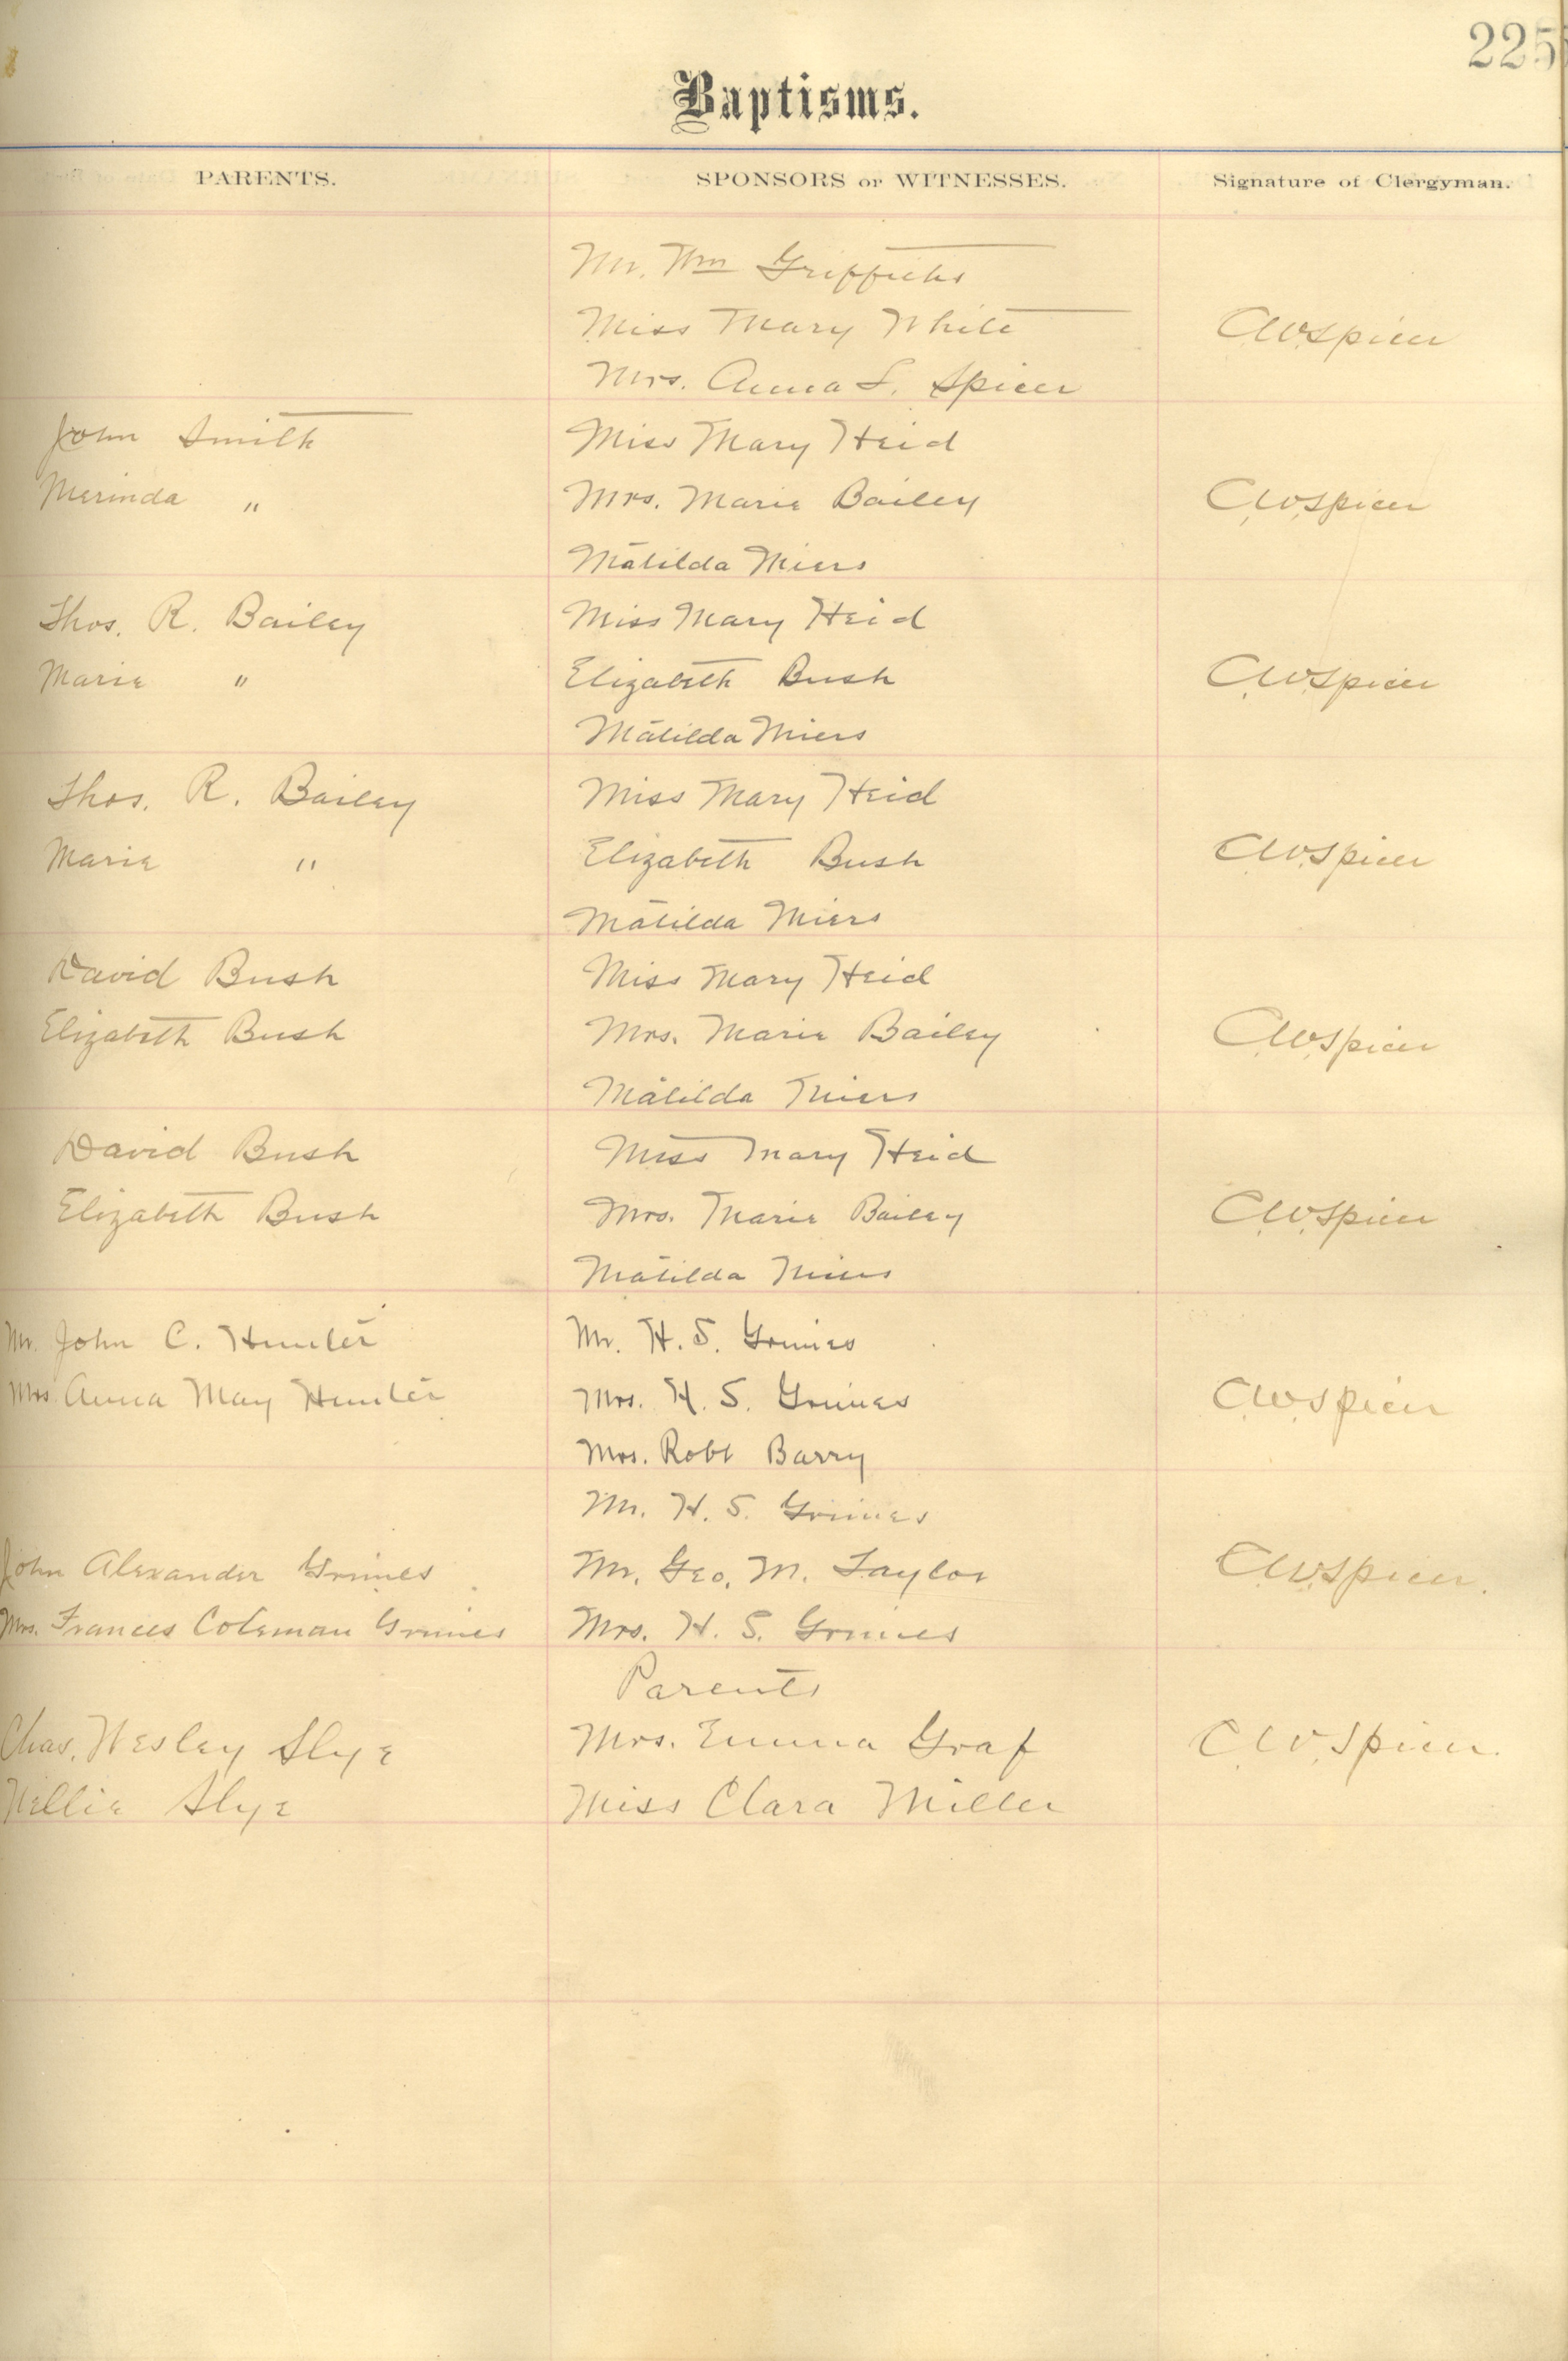 225
Baptisms.
PARENTS. SPONSORS or WITNESSES. Signature of Clergyman.
Mr. Wm Griffiths
Miss Mary White
C.W.Spicer
Mrs. Anna L. Spicer
John Smith
Miss Mary Heid
Merinda "
Mrs. Marie Bailey
C.W.Spicer
Matilda Miers
Thos. R. Bailey
Miss Mary Heid
Marie "
Elizabeth Bush
C.W.Spicer
Matilda Miers
Thos. R. Bailey
Miss Mary Heid
Marie "
Elizabeth Bush
C.W.Spicer
Matilda Miers
David Bush
Miss Mary Heid
Elizabeth Bush
Mrs. Marie Bailey
C.W.Spicer
Matilda Miers
David Bush
Miss Mary Heid
Elizabeth Bush
Mrs. Marie Bailey
C.W.Spicer
Matilda Miers
Mr. John C. Hunter
Mr. H. S. Grimes
Mrs. Anna May Hunter
Mrs. H. S. Grimes
C.W.Spicer
Mrs. Robt Barry
Mr. H. S. Grimes
John Alexander Grimes
Mr. Geo. M. Taylor
C.W.Spicer.
Mrs. Frances Coleman Grimes
Mrs. H. S. Grimes
Parents
Chas. Wesley Slye
Mrs. Emma Graf
C.W.Spicer.
Nellie Slye
Miss Clara Miller